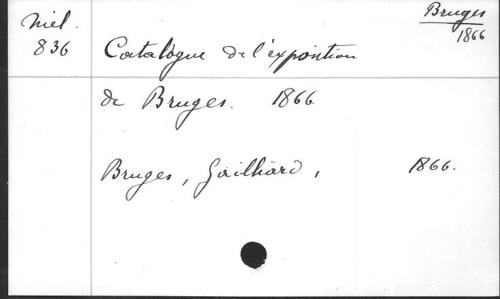 Niel.
836
Bruges
1866
Catalogue de l'exposition
de Bruges. 1866
Bruges, Gailliard, 1866.